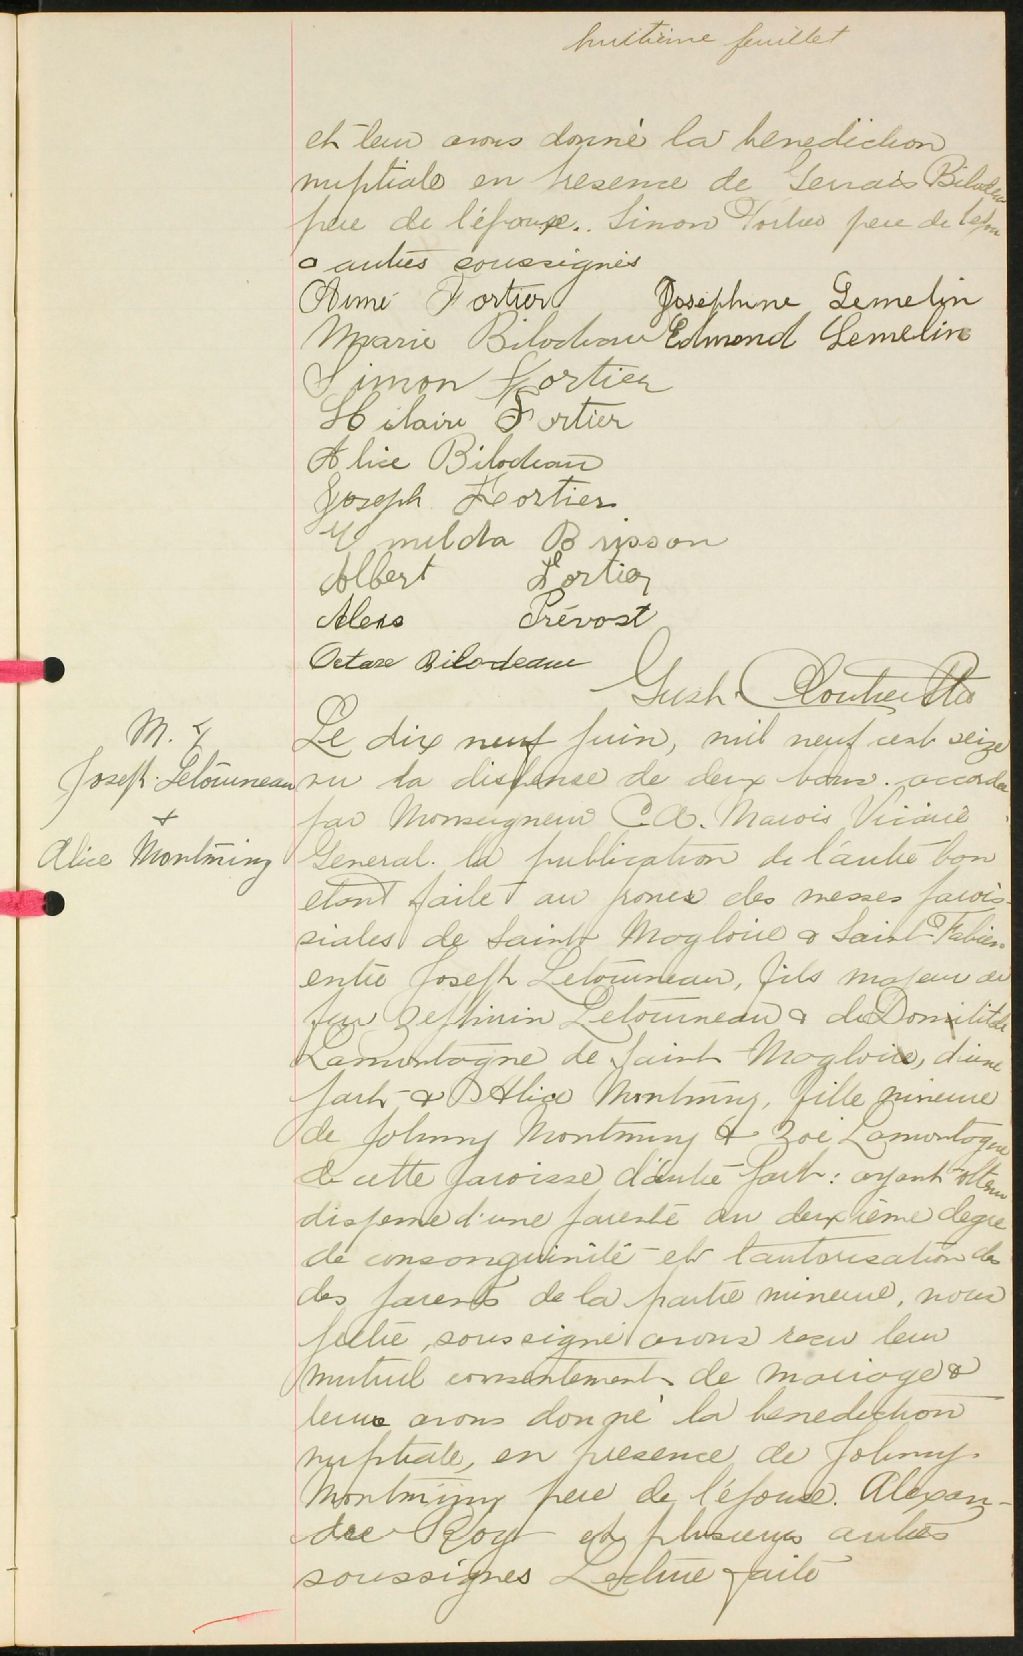 huitième feuillet
et leur avons donné la benediction
nuptiale en presence de Gervais Bilodeau
pere de l'épouse.. Simon Fortier pere de l'epou
& autres soussignés
Aimé Fortier Joséphine Lemelin
Marie Bilodeau Edmond Lemelin
Simon Fortier
Hilaire Fortier
Alice Bilodeau
Joseph Fortier
Emilda Brisson
Albert Fortier
Prévost
Octave Bilodeau
Cloutier Ptre
M. 4
Joseph Letourneau
+
Alice Montminy
Le dix neuf juin, mil neuf cent seize
vu la dispense de deux bans accordee
par Monseigneur C.A. Marois Vicaire
General. la publication de l'autre ban
etant faite au prone des messes parois-
siales de Saint Magloire & Saint-Fabien
entre Joseph Letourneau, fils majeur de
feu Zephirin Letourneau & de Domitilde
Lamontagne de Saint Magloire, d'une
part & Alice Montminy, fille mineure
de Johnny Montminy & Zoé Lamontagne
de cette paroisse d'autre part: ayant obtenu
dispense d'une parenté au deuxième degre
de consanguinité et l'autorisation des
des parents de la partie mineure, nous
prêtre, soussigné avons recu leur
mutuel consentement de mariage &
leur avons donné la benediction
nuptiale, en presence de Johnny
Montminy pere de l'épouse. Alexan-
dre Roy et plusieurs autres
soussignes Lecture faite